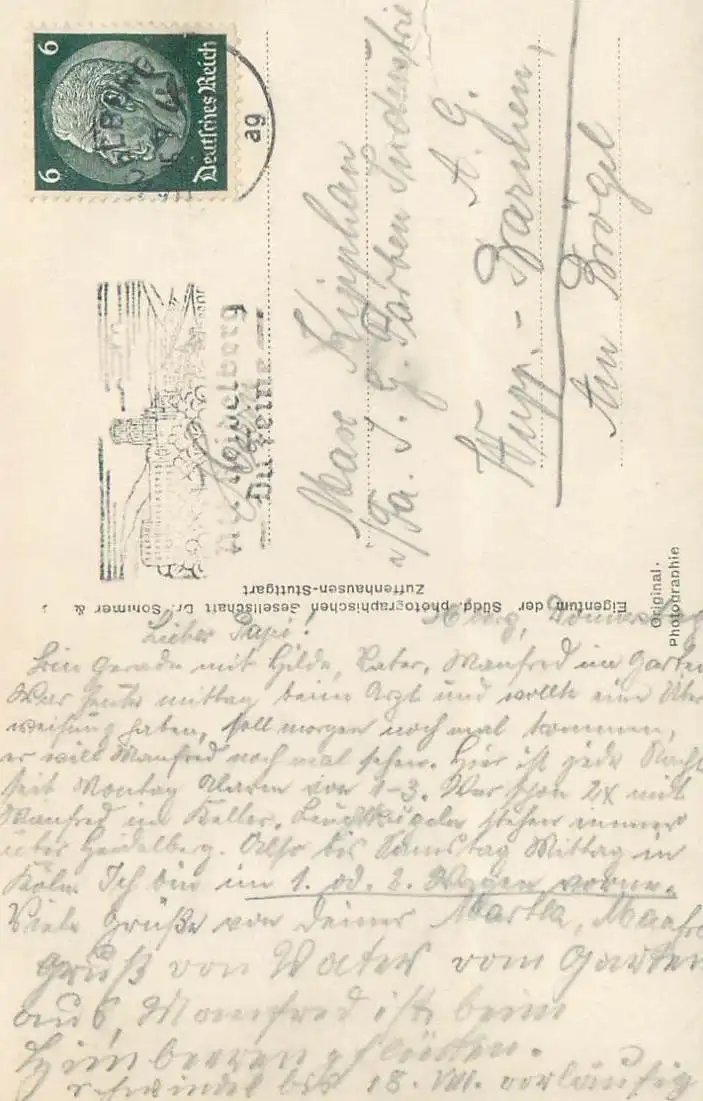 6 6
Deutsches Reich
ag
Alt Heidelberg
Du feine
Max Kipphan
i/Fa. I. G. Farben Industrie
A. G.
Wupp.-Barmen,
Am Brögel
Eigentum der Südd. photographischen Gesellschaft Dr. Sommer &
Zuffenhausen-Stuttgart
Original-
Photographie
Donnerstag
Lieber Papi!
Bin gerade mit Hilde, Vater, Manfred im Garten
War heute mittag beim Arzt und wollte eine Über
weisung haben, soll morgen noch mal kommen,
er will Manfred noch mal sehen. Hier ist jede Nacht
seit Montag Alarm von 1-3. War schon 2x mit
Manfred im Keller. Leuchtkugeln stehen immer
über Heidelberg. Also bis Samstag Mittag in
Köln. Ich bin im 1. od. 2. Wagen vorne.
Viele Grüße von Deiner Martha, Manfred
Gruß von Vater vom Garten
aus, Manfred ist beim
Himbeeren pflücken.
bis 18. VIII. vorläufig